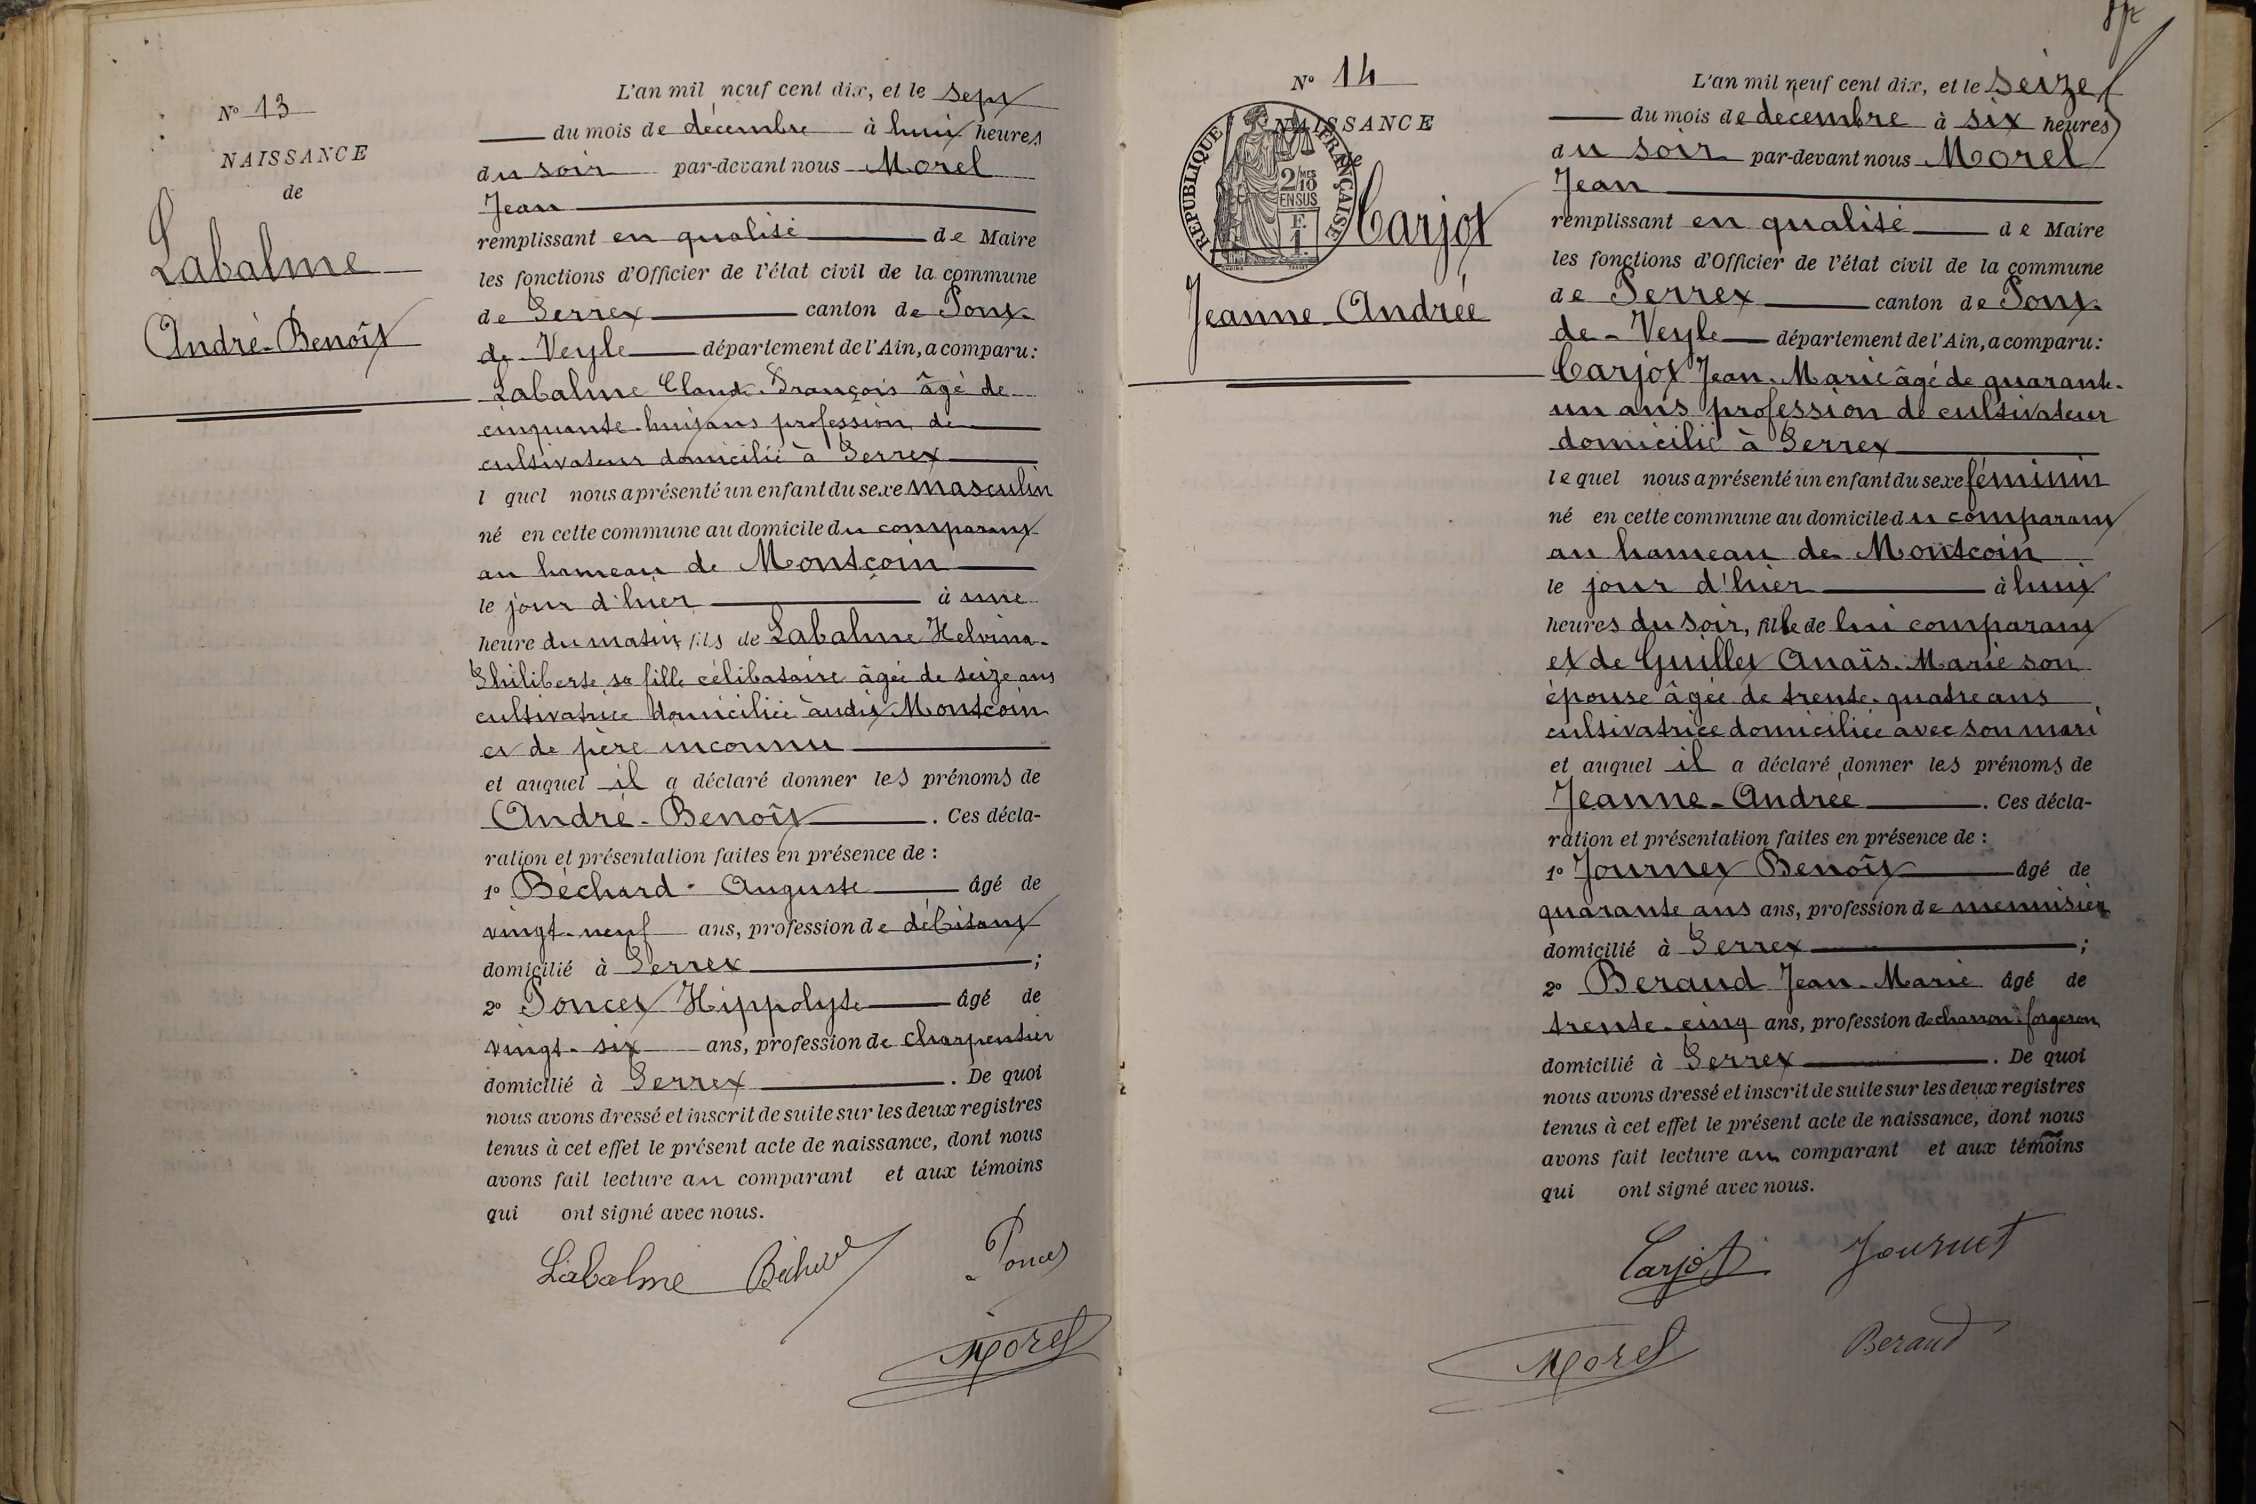 N° 13
NAISSANCE
de
Labalme
André-Benoît
L'an mil neuf cent dix, et le sept
du mois de décembre à huit heures
du soir par-devant nous Morel
Jean
remplissant en qualité de Maire
les fonctions d'Officier de l'état civil de la commune
de Perrex canton de Pont-
de-Veyle département de l'Ain, a comparu:
Labalme Claude-François âgé de
cinquante-huit ans profession de
cultivateur domicilié à Perrex
l quel nous a présenté un enfant du sexe masculin
né en cette commune au domicile du comparant
au hameau de Montcoin
le jour d'hier à une
heure du matin, fils de Labalme Helvina-
Philiberte sa fille célibataire âgée de seize ans
cultivatrice domiciliée audit Montcoin
et de père inconnu
et auquel il a déclaré donner les prénoms de
André-Benoît. Ces décla-
ration et présentation faites en présence de :
1° Béchard Auguste âgé de
vingt-neuf ans, profession de débitant
domicilié à Perrex ;
2° Poncet Hippolyte âgé de
vingt-six ans, profession de charpentier
domicilié à Perrex . De quoi
nous avons dressé et inscrit de suite sur les deux registres
tenus à cet effet le présent acte de naissance, dont nous
avons fait lecture au comparant et aux témoins
qui ont signé avec nous.
Labalme Béchard Poncet
Morel
N° 14
NAISSANCE
de
REPUBLIQUE FRANÇAISE
2/10 MES
EN SUS
F.
1.
Carjot
Jeanne-Andrée
L'an mil neuf cent dix, et le seize
du mois de décembre à six heures
du soir par-devant nous Morel
Jean
remplissant en qualité de Maire
les fonctions d'Officier de l'état civil de la commune
de Perrex canton de Pont-
de-Veyle département de l'Ain, a comparu:
Carjot Jean-Marie âgé de quarante-
un ans profession de cultivateur
domicilié à Perrex
lequel nous a présenté un enfant du sexe féminin
né en cette commune au domicile du comparant
au hameau de Montcoin
le jour d'hier à huit
heures du soir, fille de lui comparant
et de Guillet Anaïs-Marie son
épouse âgée de trente-quatre ans
cultivatrice domiciliée avec son mari
et auquel il a déclaré donner les prénoms de
Jeanne-Andrée . Ces décla-
ration et présentation faites en présence de :
1° Journet Benoît âgé de
quarante ans ans, profession de menuisier
domicilié à Perrex ;
2° Beraud Jean-Marie âgé de
trente-cinq ans, profession de charron-forgeron
domicilié à Perrex . De quoi
nous avons dressé et inscrit de suite sur les deux registres
tenus à cet effet le présent acte de naissance, dont nous
avons fait lecture au comparant et aux témoins
qui ont signé avec nous.
Carjot Journet
Morel Beraud